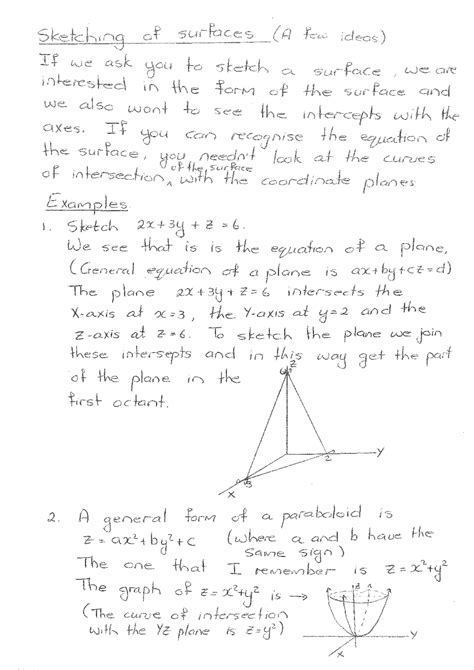 Sketching of surfaces (A few ideas)
If we ask you to sketch a surface, we are
interested in the form of the surface and
we also want to see the intercepts with the
axes. If you can recognise the equation of
the surface, you needn't look at the curves
of intersection of the surface with the coordinate planes
Examples.
1. Sketch 2x+3y+z=6.
We see that is is the equation of a plane,
(General equation of a plane is ax+by+cz=d)
The plane 2x+3y+z=6 intersects the
X-axis at x=3, the Y-axis at y=2 and the
z-axis at z=6. To sketch the plane we join
these intersepts and in this way get the part
of the plane in the
first octant.
6 z
2 Y
3
X
2. A general form of a paraboloid is
z=ax²+by²+c (where a and b have the
same sign)
The one that I remember is z=x²+y²
The graph of z=x²+y² is →
(The curve of intersection
with the YZ plane is z=y²)
Y
X